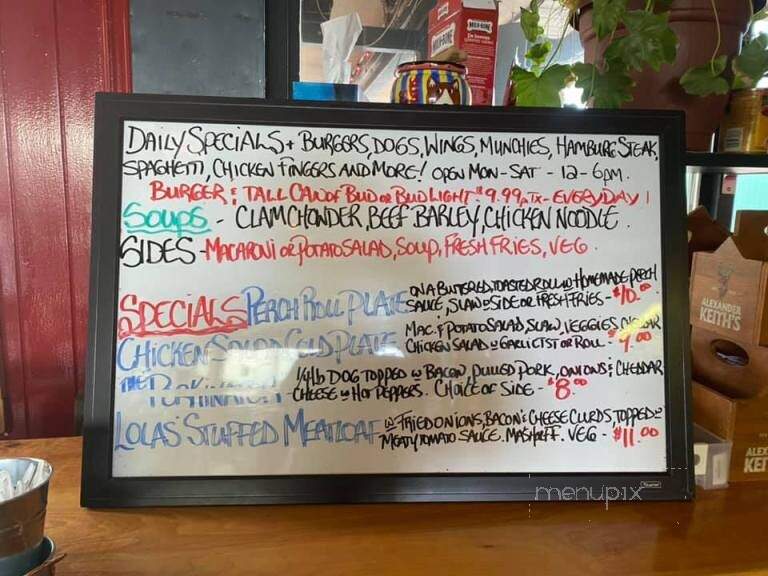 DAILY SPECIALS + BURGERS, DOGS, WINGS, MUNCHIES, HAMBURG STEAK,
SPAGHETTI, CHICKEN FINGERS AND MORE! OPEN MON-SAT - 12-6PM.
BURGER & TALL CAN OF BUD OR BUD LIGHT $9.99 p.TX - EVERYDAY!
SOUPS - CLAM CHOWDER, BEEF BARLEY, CHICKEN NOODLE.
SIDES - MACARONI OR POTATO SALAD, SOUP, FRESH FRIES, VEG.
SPECIALS PERCH ROLL PLATE ON A BUTTERED, TOASTED ROLL W HOMEMADE PERCH
SAUCE, SLAW & SIDE OR FRESH FRIES - $10.00
CHICKEN SALAD COLD PLATE MAC. & POTATO SALAD, SLAW, VEGGIES,
CHICKEN SALAD W GARLIC TST OR ROLL - $9.00
THE 1/4 lb DOG TOPPED W BACON, PULLED PORK, ONIONS & CHEDDAR
PORKINATOR CHEESE W HOT PEPPERS. CHOICE OF SIDE - $8.00
LOLAS' STUFFED MEATLOAF W FRIED ONIONS, BACON & CHEESE CURDS, TOPPED W
MEATY TOMATO SAUCE. MASH OR FF. VEG - $11.00
MILK-BONE
MILK-BONE
ALEXANDER
KEITH'S
ALEX
KEI
menupix